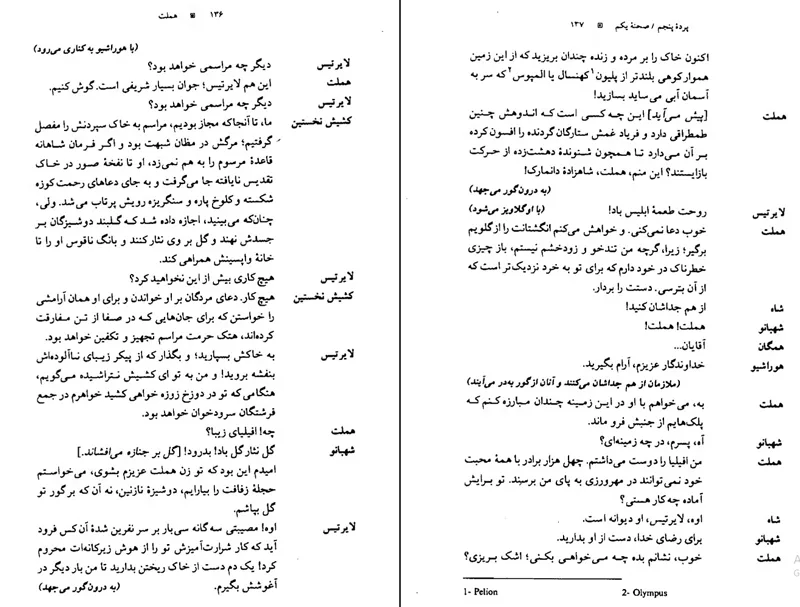 ۱۳۶ ▣ هملت
(با هوراشیو به کناری می‌رود)
لایرتیس دیگر چه مراسمی خواهد بود؟
هملت این هم لایرتیس؛ جوان بسیار شریفی است. گوش کنیم.
لایرتیس دیگر چه مراسمی خواهد بود؟
کشیش نخستین ما، تا آنجاکه مجاز بودیم، مراسم به خاک سپردنش را مفصل
گرفتیم؛ مرگش در مظان شبهت بود و اگر فرمان شاهانه
قاعدهٔ مرسوم را به هم نمی‌زد، او تا نفخهٔ صور در خاک
تقدیس نایافته جا می‌گرفت و به جای دعاهای رحمت کوزه
شکسته و کلوخ پاره و سنگریزه رویش پرتاب می‌شد. ولی،
چنان‌که می‌بینید، اجازه داده شد که گلبند دوشیزگان بر
جسدش نهند و گل بر وی نثار کنند و بانگ ناقوس او را تا
خانهٔ واپسینش همراهی کند.
لایرتیس هیچ کاری بیش از این نخواهید کرد؟
کشیش نخستین هیچ کار. دعای مردگان بر او خواندن و برای او همان آرامشی
را خواستن که برای جان‌هایی که در صفا از تن مفارقت
کرده‌اند، هتک حرمت مراسم تجهیز و تکفین خواهد بود.
لایرتیس به خاکش بسپارید؛ و بگذار که از پیکر زیبای ناآلوده‌اش
بنفشه بروید! و من به تو ای کشیش نتراشیده می‌گویم،
هنگامی‌که تو در دوزخ زوزه خواهی کشید خواهرم در جمع
فرشتگان سرودخوان خواهد بود.
هملت چه! افیلیای زیبا؟
شهبانو گل نثار گل باد! بدرود! [گل بر جنازه می‌افشاند.]
امیدم این بود که تو زن هملت عزیزم بشوی، می‌خواستم
حجلهٔ زفافت را بیارایم، دوشیزهٔ نازنین، نه آن که بر گور تو
گل بپاشم.
لایرتیس اوه! مصیبتی سه‌گانه سی‌بار بر سر نفرین شدهٔ آن کس فرود
آید که کار شرارت‌آمیزش تو را از هوش زیرکانه‌ات محروم
کرد! یک دم دست از خاک ریختن بدارید تا من بار دیگر در
آغوشش بگیرم. (به درون‌گور می‌جهد)
پردهٔ پنجم / صحنهٔ یکم ▣ ۱۳۷
اکنون خاک را بر مرده و زنده چندان بریزید که از این زمین
هموار کوهی بلندتر از پلیون۱ کهنسال یا المپوس۲ که سر به
آسمان آبی می‌ساید بسازید!
هملت [پیش می‌آید] این چه کسی است که اندوهش چنین
طمطراقی دارد و فریاد غمش ستارگان گردنده را افسون کرده
بر آن می‌دارد تا همچون شنوندهٔ دهشت‌زده از حرکت
بازایستند؟ این منم، هملت، شاهزادهٔ دانمارک!
(به درون‌گور می‌جهد)
لایرتیس روحت طعمهٔ ابلیس باد! (با او گلاویز می‌شود)
هملت خوب دعا نمی‌کنی. و خواهش می‌کنم انگشتانت را از گلویم
برگیر؛ زیرا، گرچه من تندخو و زودخشم نیستم، باز چیزی
خطرناک در خود دارم که برای تو به خرد نزدیک‌تر است که
از آن بترسی. دستت را بردار.
شاه از هم جداشان کنید!
شهبانو هملت! هملت!
همگان آقایان...
هوراشیو خداوندگار عزیزم، آرام بگیرید.
(ملازمان از هم جداشان می‌کنند و آنان از گور به‌در می‌آیند)
هملت به، می‌خواهم با او در این زمینه چندان مبارزه کنم که
پلک‌هایم از جنبش فرو ماند.
شهبانو آه، پسرم، در چه زمینه‌ای؟
هملت من افیلیا را دوست می‌داشتم. چهل هزار برادر با همهٔ محبت
خود نمی‌توانند در مهرورزی به پای من برسند. تو برایش
آماده چه کار هستی؟
شاه اوه، لایرتیس، او دیوانه است.
شهبانو برای رضای خدا، دست از او بدارید.
هملت خوب، نشانم بده چه می‌خواهی بکنی؛ اشک بریزی؟
1- Pelion 2- Olympus